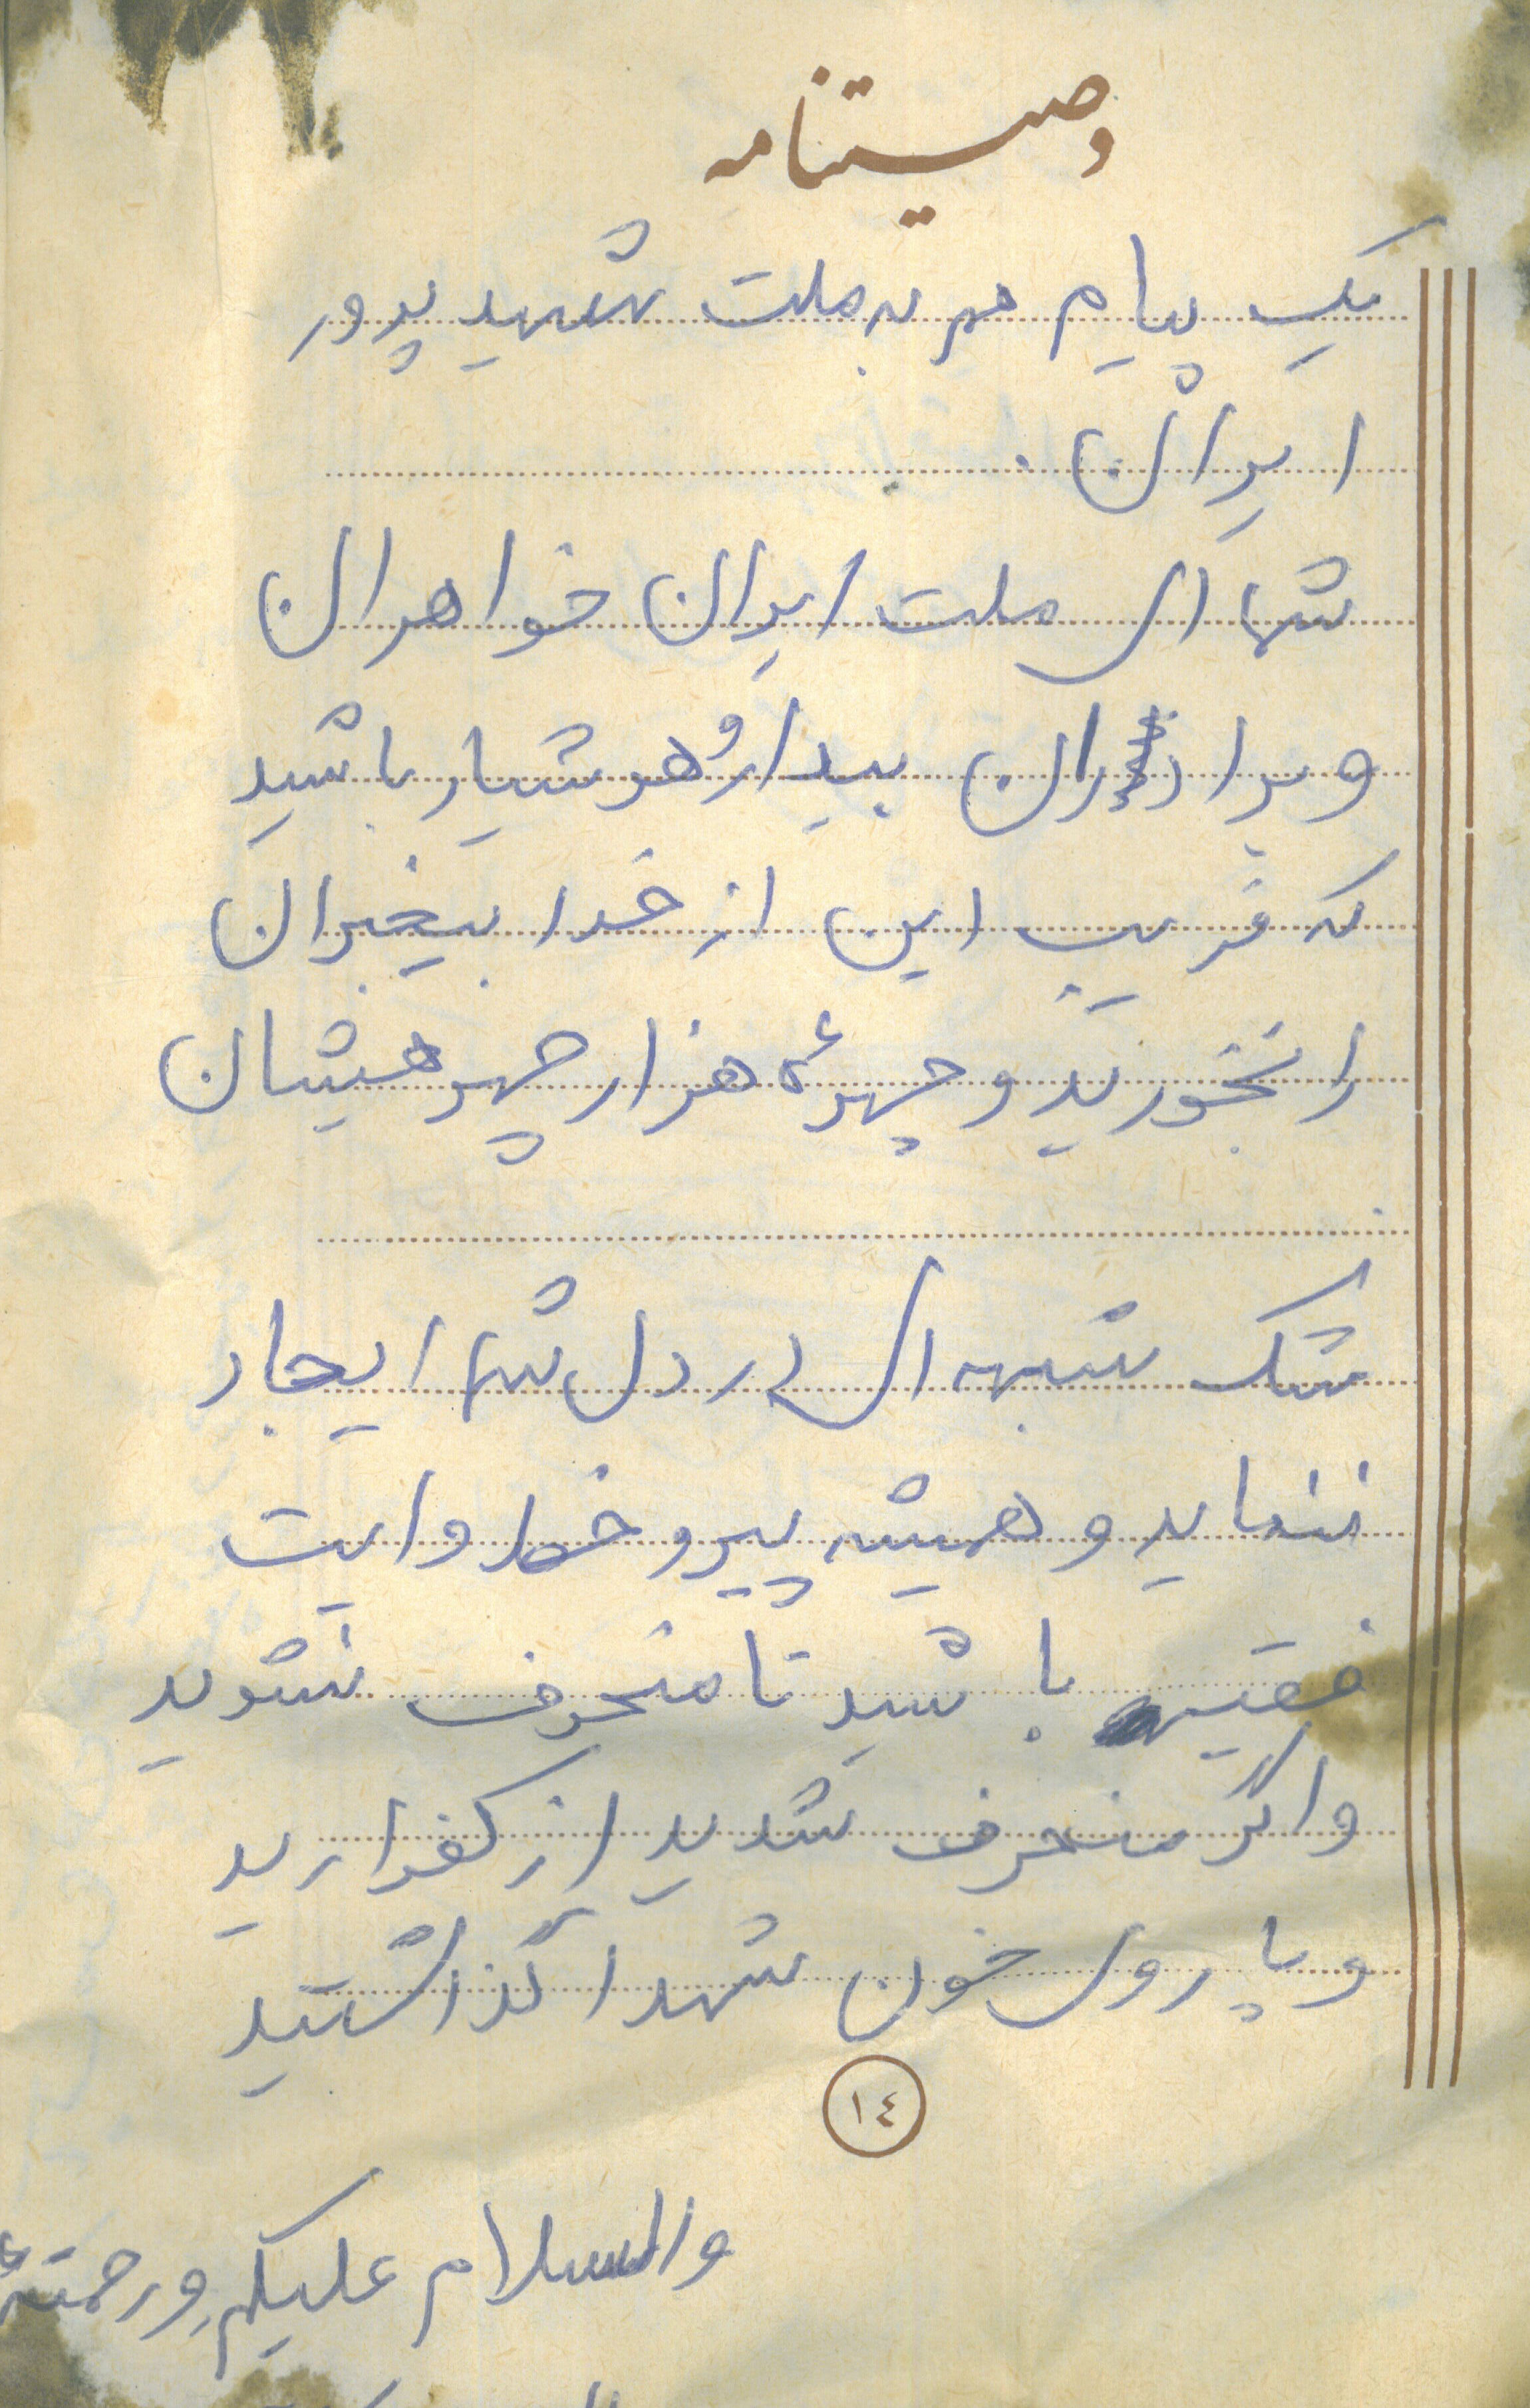 وصیتنامه
یک پیام هم به ملت شهید پرور
ایران.
شما ای ملت ایران خواهران
و برادران بیدار و هوشیار باشید
که فریب این از خدا بیخبران
را نخورید و چهرهٔ هزار چهرهیشان
شک شبهه ای در دل شما ایجاد
ننماید و همیشه پیرو خط ولایت
فقیه باشید تا منحرف نشوید
و اگر منحرف شدید از کفرارید
و پا روی خون شهدا گذاشتید
١٤
والسلام علیکم و رحمته